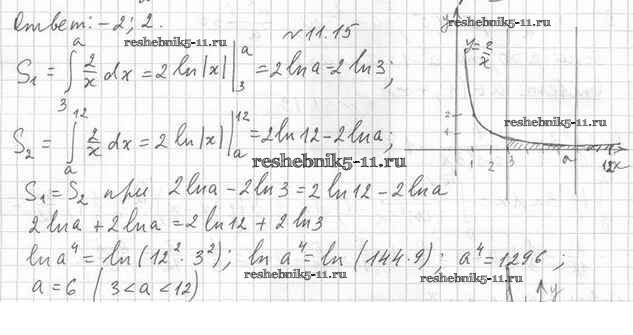 Ответ: -2; 2.
reshebnik5-11.ru
№ 11.15
S₁ = ∫₃ᵃ 2/x dx = 2 ln|x| |₃ᵃ = 2 ln a - 2 ln 3;
S₂ = ∫ₐ¹² 2/x dx = 2 ln|x| |ₐ¹² = 2 ln 12 - 2 ln a;
reshebnik5-11.ru
S₁ = S₂ при 2 ln a - 2 ln 3 = 2 ln 12 - 2 ln a
2 ln a + 2 ln a = 2 ln 12 + 2 ln 3
ln a⁴ = ln (12² · 3²); ln a⁴ = ln (144 · 9); a⁴ = 1296;
reshebnik5-11.ru
reshebnik5-11.ru
a = 6 (3 < a < 12)
y
y = 2/x
reshebnik5-11.ru
2
1 2 3 a 12 x
y